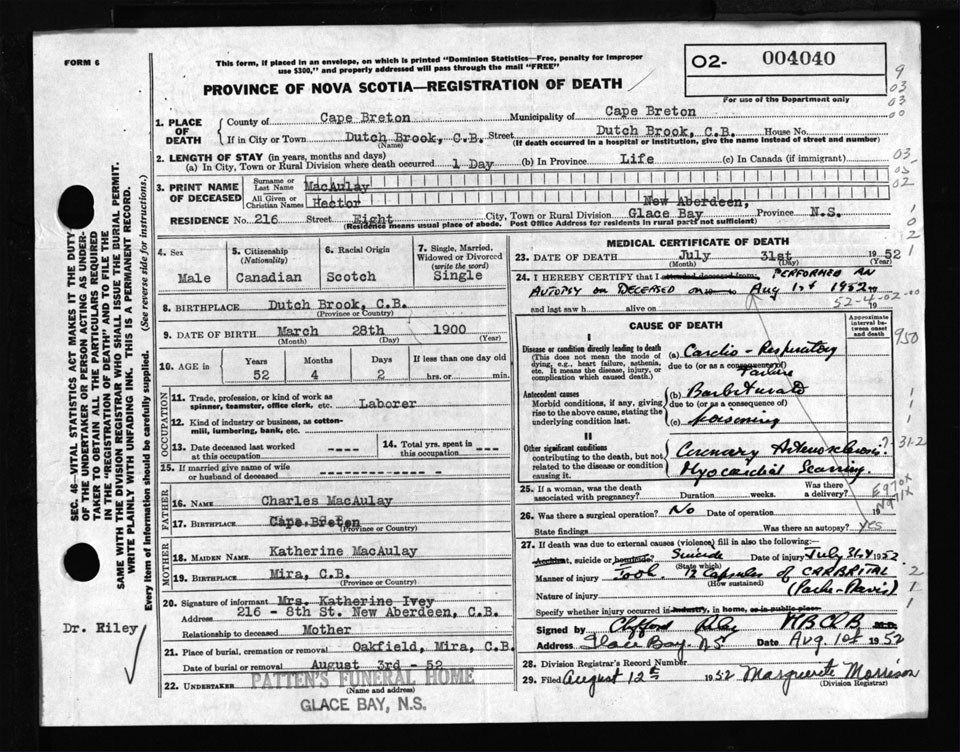 FORM 6
This form, if placed in an envelope, on which is printed "Dominion Statistics—Free, penalty for improper
use $300," and properly addressed will pass through the mail "FREE"
02- 004040
For use of the Department only
PROVINCE OF NOVA SCOTIA—REGISTRATION OF DEATH
9
03
03
00
03
03
02
1. PLACE OF DEATH
County of Cape Breton Municipality of Cape Breton
If in City or Town Dutch Brook, C.B. Street Dutch Brook, C.B. House No.
(Name) (If death occurred in a hospital or institution, give the name instead of street and number)
2. LENGTH OF STAY (in years, months and days)
(a) In City, Town or Rural Division where death occurred 1 Day (b) In Province Life (c) In Canada (if immigrant)
3. PRINT NAME OF DECEASED
Surname or Last Name MacAulay
All Given or Christian Names Hector
New Aberdeen,
RESIDENCE No. 216 Street Eight City, Town or Rural Division Glace Bay Province N.S.
(Residence means usual place of abode. Post Office Address for residents in rural parts not sufficient)
4. Sex
Male
5. Citizenship
(Nationality)
Canadian
6. Racial Origin
Scotch
7. Single, Married, Widowed or Divorced
(write the word)
Single
8. BIRTHPLACE Dutch Brook, C.B.
(Province or Country)
9. DATE OF BIRTH March 28th 1900
(Month) (Day) (Year)
10. AGE in
Years Months Days If less than one day old
52 4 2 hrs. or min.
OCCUPATION
11. Trade, profession or kind of work as
spinner, teamster, office clerk, etc. Laborer
12. Kind of industry or business, as cotton-
mill, lumbering, bank, etc.
13. Date deceased last worked
at this occupation
14. Total yrs. spent in
this occupation
15. If married give name of wife
or husband of deceased
FATHER
16. NAME Charles MacAulay
17. BIRTHPLACE Cape Breton
(Province or Country)
MOTHER
18. MAIDEN NAME Katherine MacAulay
19. BIRTHPLACE Mira, C.B.
(Province or Country)
20. Signature of informant Mrs. Katherine Ivey
Address 216 - 8th St. New Aberdeen, C.B.
Relationship to deceased Mother
21. Place of burial, cremation or removal Oakfield, Mira, C.B.
Date of burial or removal August 3rd - 52
22. UNDERTAKER PATTEN'S FUNERAL HOME
(Name and address)
GLACE BAY, N.S.
MEDICAL CERTIFICATE OF DEATH
23. DATE OF DEATH July 31st 1952
(Month) (Day) (Year)
24. I HEREBY CERTIFY that I attended deceased from: PERFORMED AN
AUTOPSY ON DECEASED on Aug 1st 1952
52-4-02-00
and last saw h alive on 19
CAUSE OF DEATH
Approximate interval between onset and death
I
Disease or condition directly leading to death
(This does not mean the mode of dying, e.g., heart failure, asthenia, etc. It means the disease, injury, or complication which caused death.)
(a) Cardio-Respiratory
due to (or as a consequence of)
Failure
Antecedent causes
Morbid conditions, if any, giving rise to the above cause, stating the underlying condition last.
(b) Barbiturate
due to (or as a consequence of)
(c) poisoning
II
Other significant conditions
contributing to the death, but not related to the disease or condition causing it.
Coronary Arteriosclerosis
Myocardial Scarring.
950
E970X
N971X
25. If a woman, was the death
associated with pregnancy? Duration weeks. Was there a delivery?
26. Was there a surgical operation? No Date of operation 19
State findings Was there an autopsy? Yes
27. If death was due to external causes (violence) fill in also the following:—
Accident, suicide or homicide? Suicide Date of injury July 31st 1952
(State which)
Manner of injury Took 12 Capsules of CARBRITAL
(How sustained)
Nature of injury (Parke-Davis)
Specify whether injury occurred in industry, in home, or in public place.
Signed by Clifford Riley M.B.Ch.B. M.D.
Address Glace Bay. N.S Date Aug. 1st 1952
28. Division Registrar's Record Number
29. Filed August 12th 1952 Marguerite Morrison
(Division Registrar)
SEC. 46—VITAL STATISTICS ACT MAKES IT THE DUTY
OF THE UNDERTAKER OR PERSON ACTING AS UNDER-
TAKER TO OBTAIN ALL THE PARTICULARS REQUIRED
IN THE "REGISTRATION OF DEATH" AND TO FILE THE
SAME WITH THE DIVISION REGISTRAR WHO SHALL ISSUE THE BURIAL PERMIT.
WRITE PLAINLY WITH UNFADING INK. THIS IS A PERMANENT RECORD.
Every item of information should be carefully supplied. (See reverse side for instructions.)
Dr. Riley